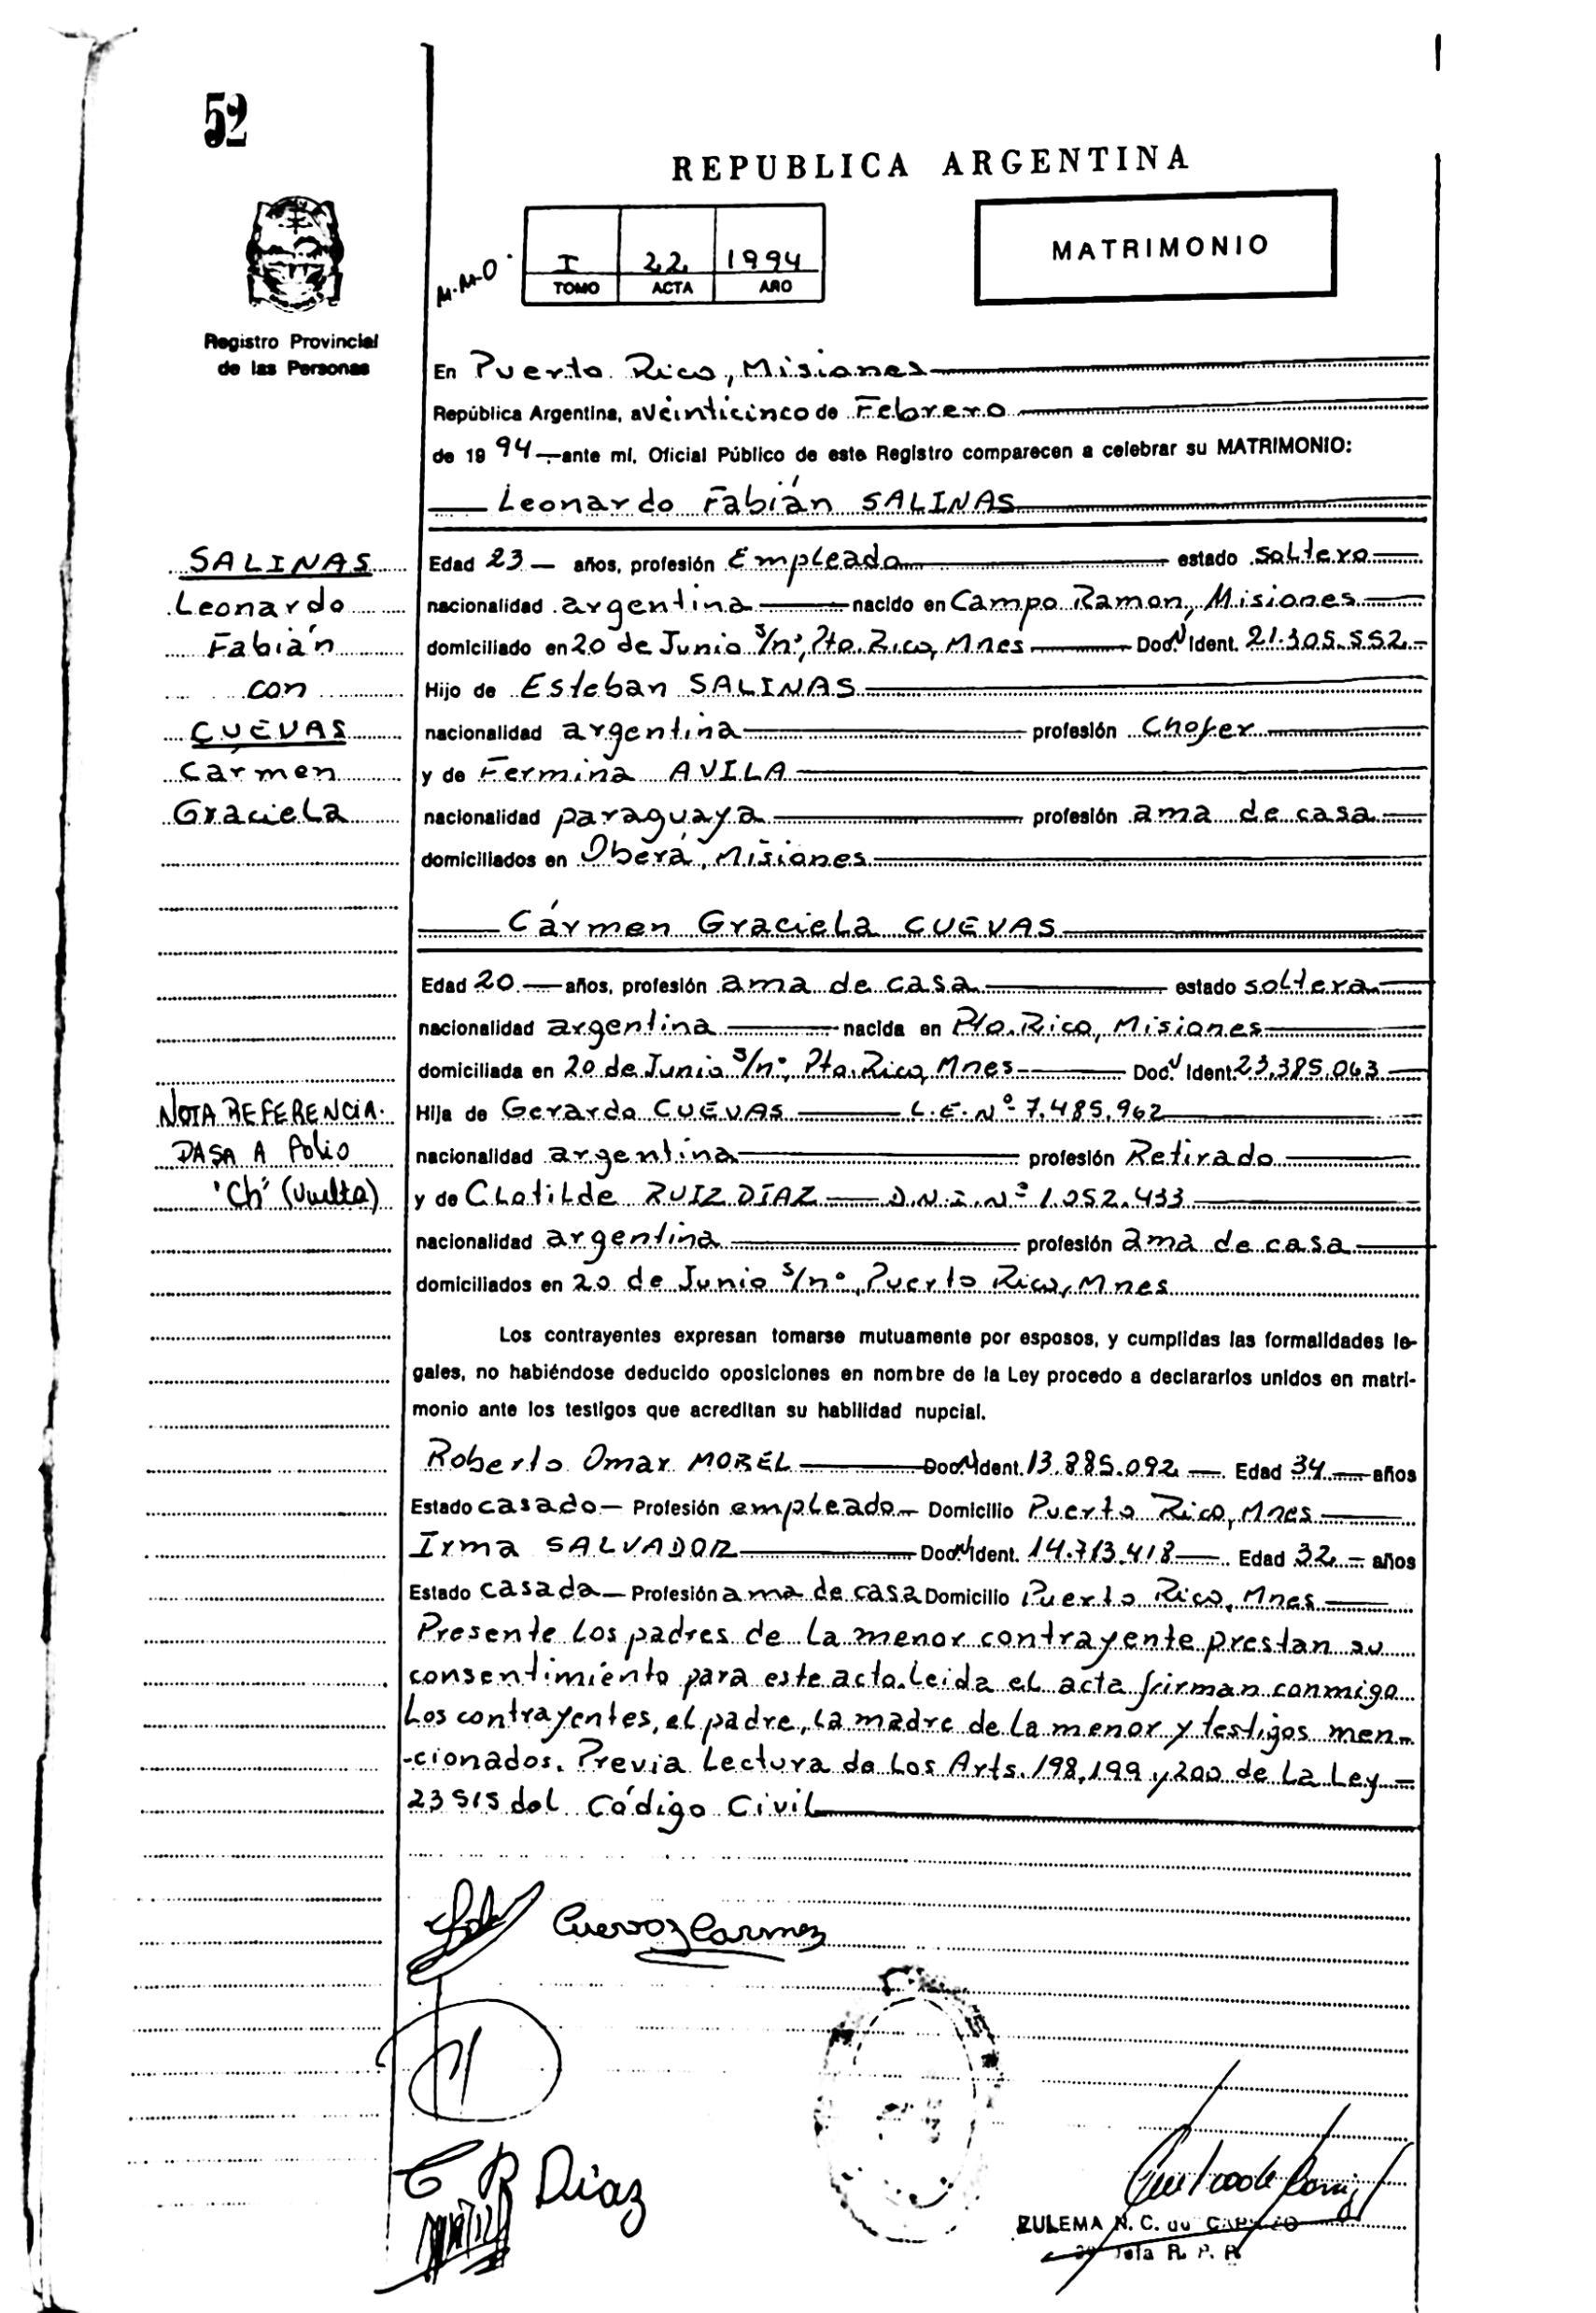 52
REPUBLICA ARGENTINA
M.M.O.
I 22 1994
TOMO ACTA AÑO
MATRIMONIO
Registro Provincial
de las Personas
En Puerto Rico, Misiones
República Argentina, a veinticinco de Febrero
de 1994 ante mí, Oficial Público de este Registro comparecen a celebrar su MATRIMONIO:
Leonardo Fabián SALINAS
SALINAS
Leonardo
Fabián
con
CUEVAS
Cármen
Graciela
Edad 23 años, profesión Empleado estado soltero
nacionalidad argentina nacido en Campo Ramon, Misiones
domiciliado en 20 de Junio s/nº, Pto. Rico, Mnes Doc. N Ident. 21.305.552
Hijo de Esteban SALINAS
nacionalidad argentina profesión Chofer
y de Fermina AVILA
nacionalidad paraguaya profesión ama de casa
domiciliados en Oberá, Misiones
Cármen Graciela CUEVAS
Edad 20 años, profesión ama de casa estado soltera
nacionalidad argentina nacida en Pto. Rico, Misiones
domiciliada en 20 de Junio s/nº, Pto. Rico, Mnes Doc. N Ident. 23.385.063
NOTA REFERENCIA.
PASA A Folio
'Ch' (vuelta)
Hija de Gerardo CUEVAS L.E. Nº 7.485.962
nacionalidad argentina profesión Retirado
y de Clotilde RUIZ DÍAZ D.N.I. Nº 1.052.433
nacionalidad argentina profesión ama de casa
domiciliados en 20 de Junio s/nº, Puerto Rico, Mnes
Los contrayentes expresan tomarse mutuamente por esposos, y cumplidas las formalidades le-
gales, no habiéndose deducido oposiciones en nombre de la Ley procedo a declararlos unidos en matri-
monio ante los testigos que acreditan su habilidad nupcial.
Roberto Omar MOREL Doc. N Ident. 13.885.092 Edad 34 años
Estado casado Profesión empleado Domicilio Puerto Rico, Mnes
Irma SALVADOR Doc. N Ident. 14.713.418 Edad 32 años
Estado casada Profesión ama de casa Domicilio Puerto Rico, Mnes
Presente los padres de la menor contrayente prestan su
consentimiento para este acto. Leida el acta firman conmigo
los contrayentes, el padre, la madre de la menor y testigos men-
-cionados. Previa Lectura de los Arts. 198, 199 y 200 de la Ley
23515 del Código Civil
Cuevas Carmen
C R Diaz
ZULEMA N. C. de
Jefa R. P. P.